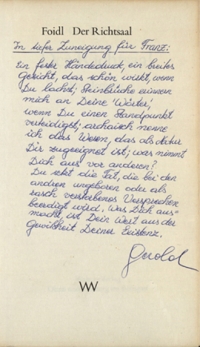 Foidl Der Richtsaal
In tiefer Zuneigung für Franz:
Ein fester Händedruck, ein breites
Gesicht, das schön wirkt, wenn
Du lachst; Steinbrüche erinnern
mich an Deine Wörter,
wenn Du einen Standpunkt
verteidigst; archaisch nenne
ich das Wesen, das als Natur
Dir zugeeignet ist; was nimmt
Dich aus vor anderen?
Du setzt die Tat, die bei den
andren ungeboren oder als
rasch verstorbenes Versprechen
beerdigt wird. Was Dich aus-
macht, ist Dein Wort aus der
Gewißheit Deiner Existenz.
Gerold